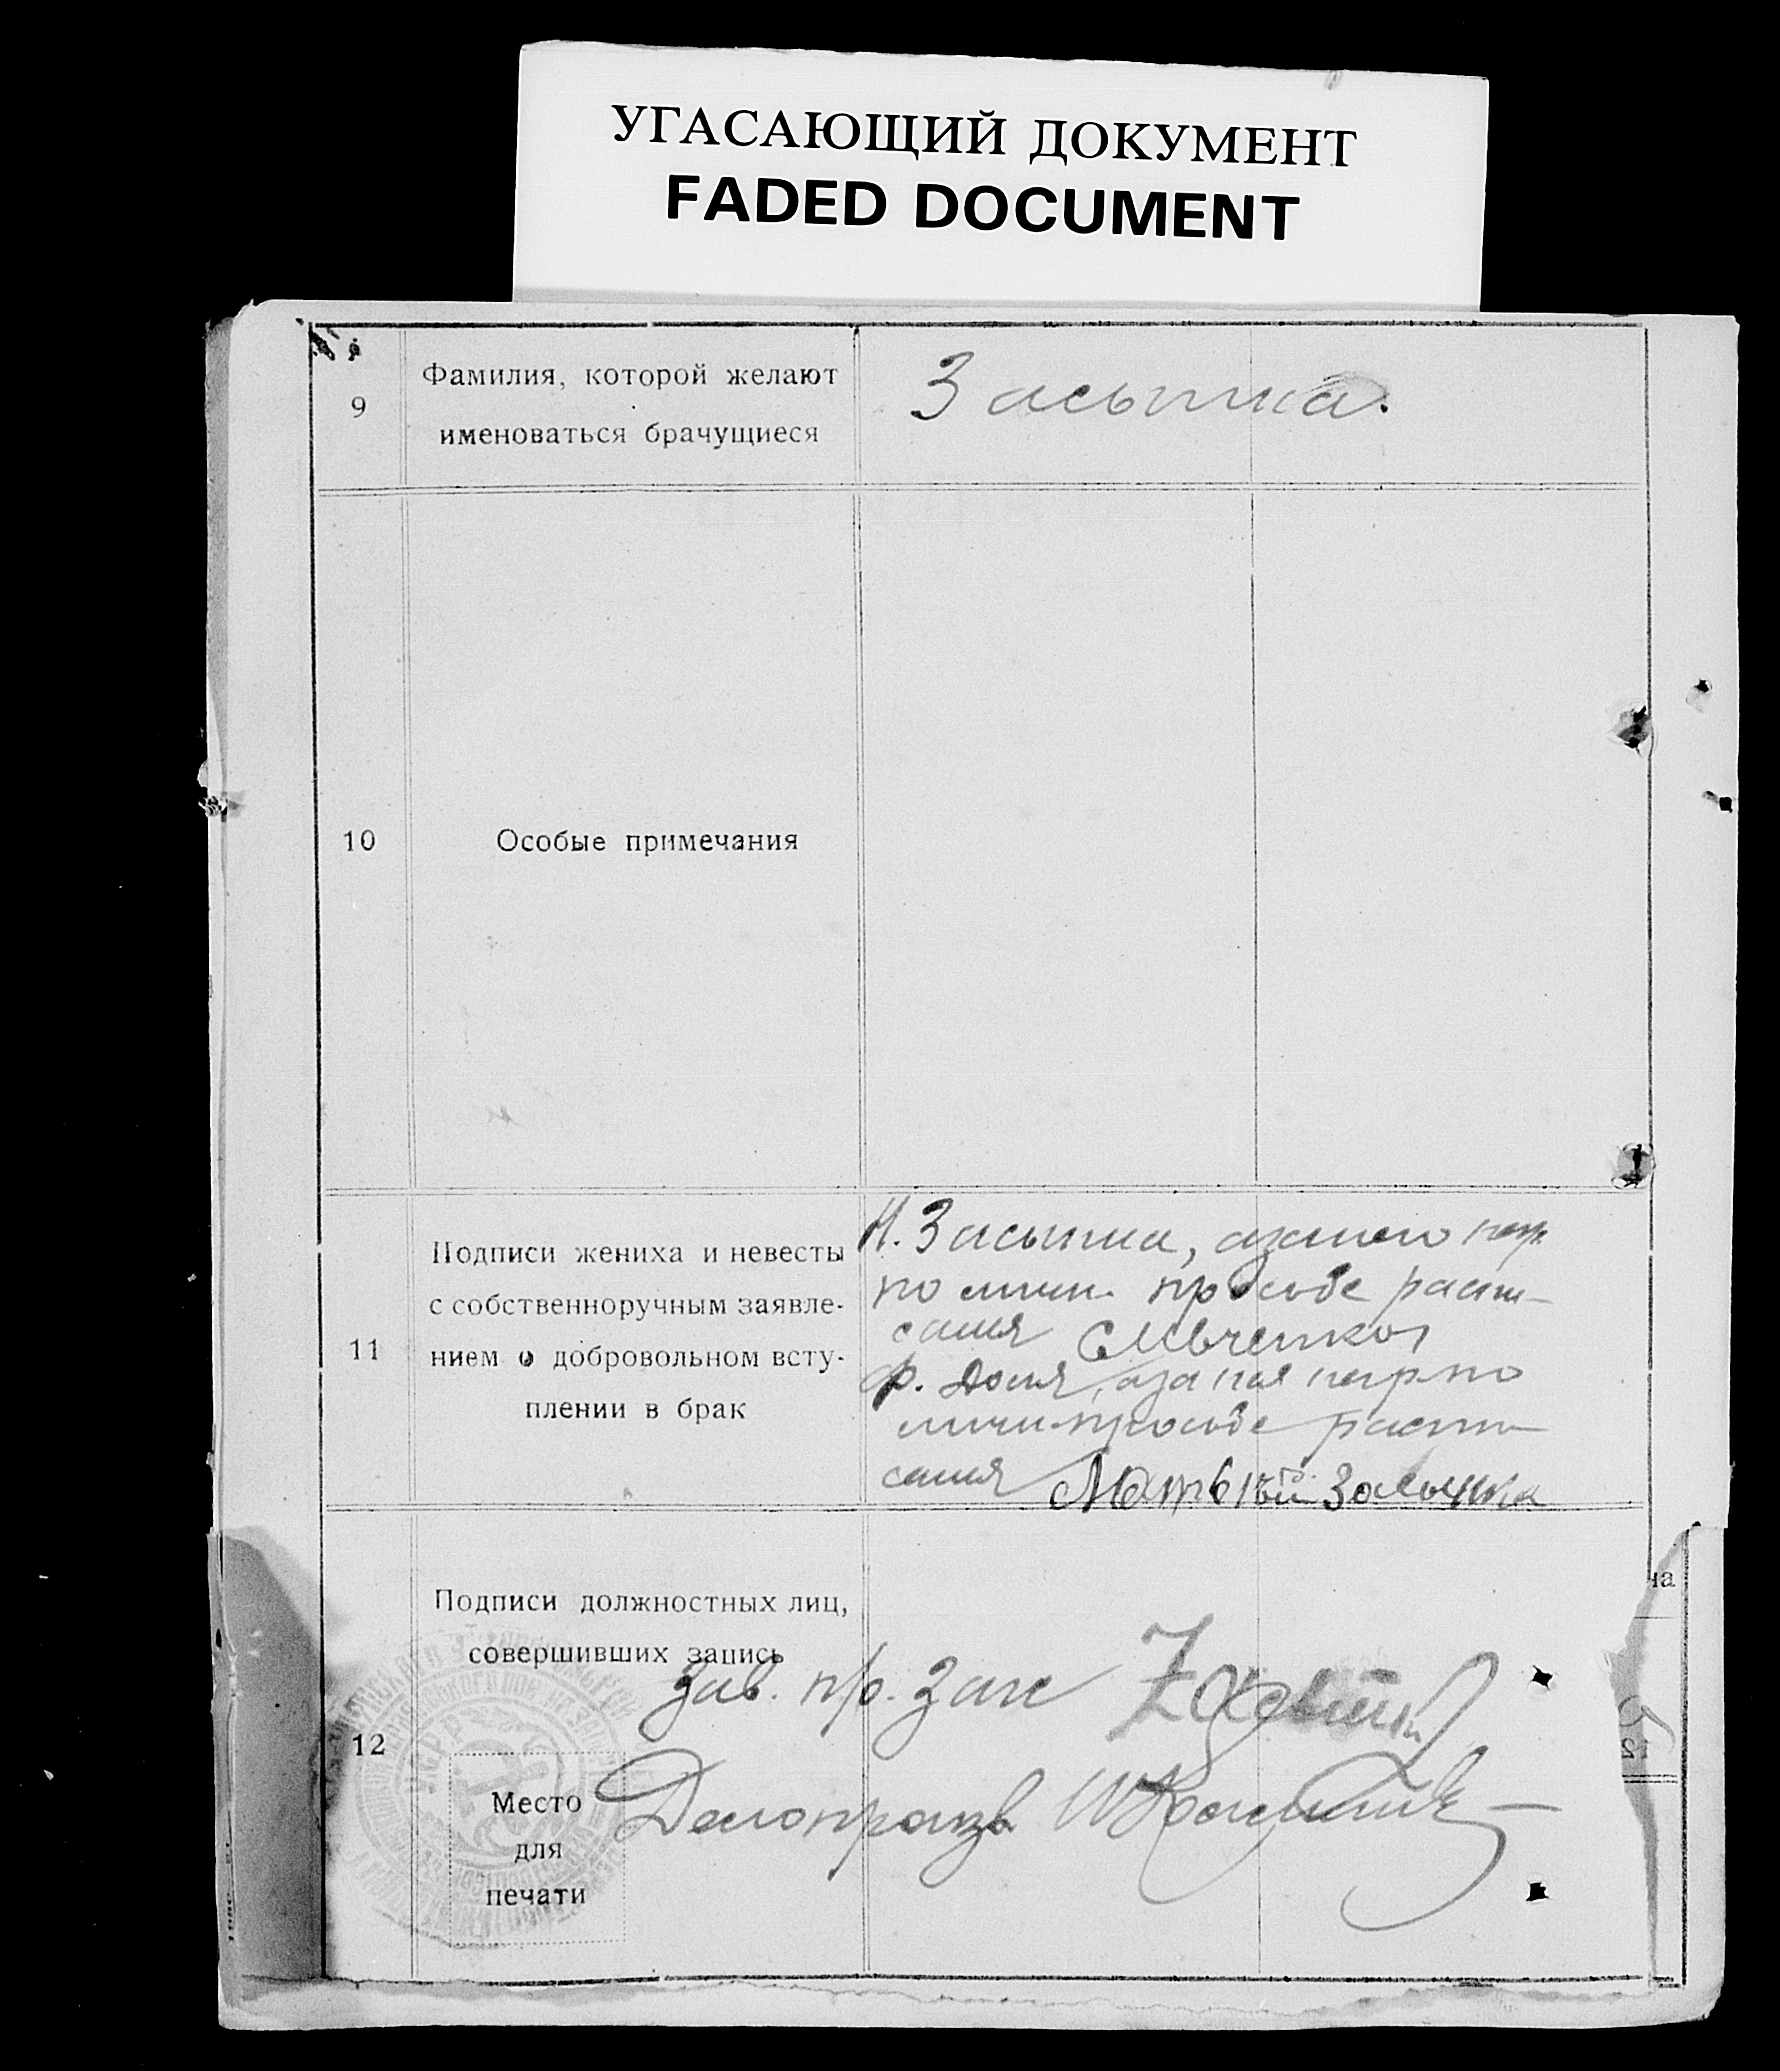 УГАСАЮЩИЙ ДОКУМЕНТ
FADED DOCUMENT
9
Фамилия, которой желают
именоваться брачущиеся
Засыпка.
10
Особые примечания
11
Подписи жениха и невесты
с собственноручным заявле-
нием о добровольном всту-
плении в брак
Н. Засыпка, а за него негр.
по личн. просьбе распи-
сался
ф. а за нея негр по
личн. просьбе распи
сался Засыпка
12
Подписи должностных лиц,
совершивших запись
Зав. пр. Загс
Делопроизв.
Место
для
печати
УСРР
на